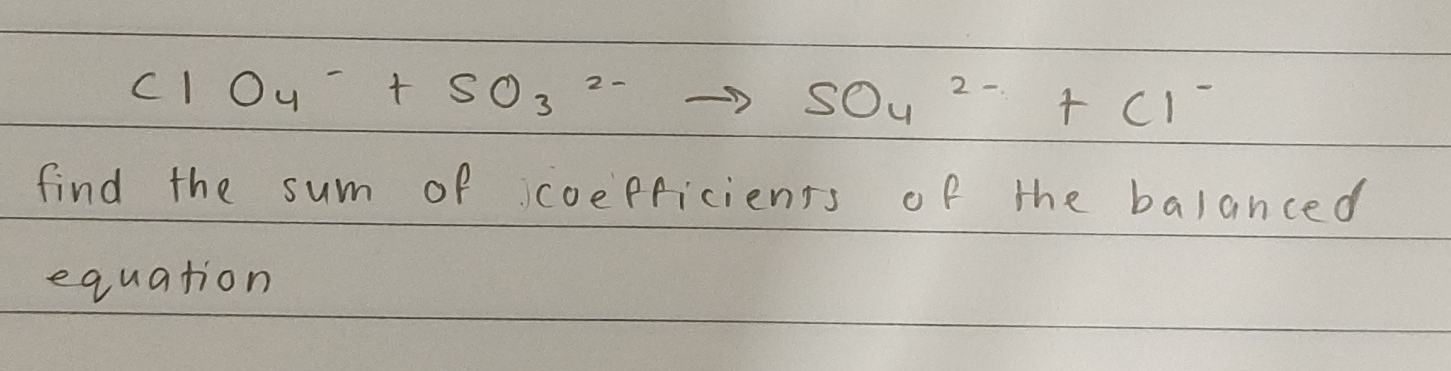 ClO₄⁻ + SO₃²⁻ → SO₄²⁻ + Cl⁻
find the sum of coefficients of the balanced
equation